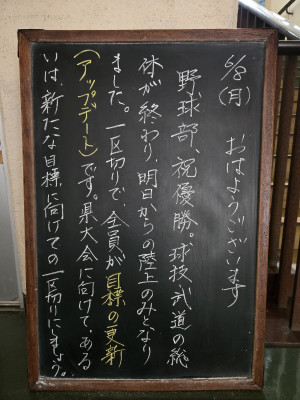 6/8(月)
おはようございます
野球部、祝優勝。球技・武道の総
体が終わり、明日からの陸上のみとなり
ました。一区切りで、全員が目標の更新
(アップデート)です。県大会に向けて、ある
いは、新たな目標に向けての一区切りにしましょう。